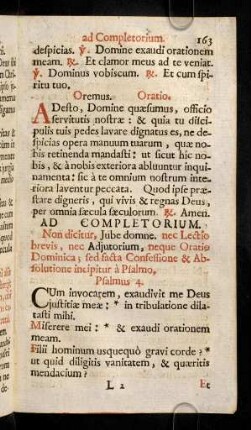 ad Completorium. 163
despicias. ℣. Domine exaudi orationem
meam. ℟. Et clamor meus ad te veniat.
℣. Dominus vobiscum. ℟. Et cum spi-
ritu tuo.
Oremus. Oratio.
ADesto, Domine quæsumus, officio
servitutis nostræ : & quia tu disci-
pulis tuis pedes lavare dignatus es, ne de-
spicias opera manuum tuarum, quæ no-
bis retinenda mandasti: ut sicut hic no-
bis, & à nobis exteriora abluuntur inqui-
namenta: sic à te omnium nostrum inte-
riora laventur peccata. Quod ipse præ-
stare digneris, qui vivis & regnas Deus,
per omnia sæcula sæculorum. ℟. Amen.
AD COMPLETORIUM.
Non dicitur, Jube domne, nec Lectio
brevis, nec Adjutorium, neque Oratio
Dominica; sed facta Confessione & Ab-
solutione incipitur à Psalmo,
Psalmus 4.
CUm invocarem, exaudivit me Deus
justitiæ meæ: * in tribulatione dila-
tasti mihi.
Miserere mei: * & exaudi orationem
meam.
Filii hominum usquequò gravi corde? *
ut quid diligitis vanitatem, & quæritis
mendacium?
L 2 Et